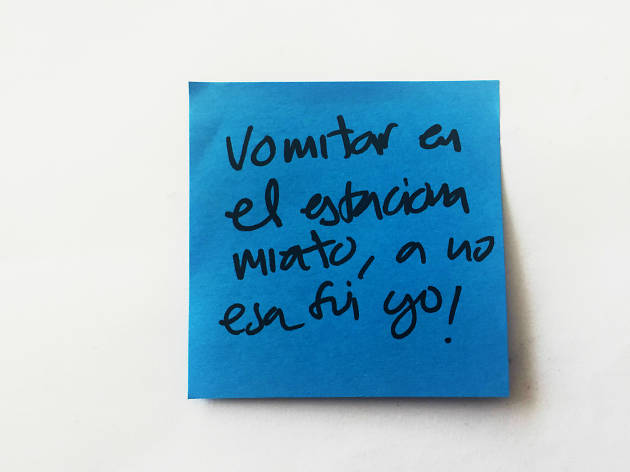 Vomitar en
el estaciona
miato, a no
esa fui yo!